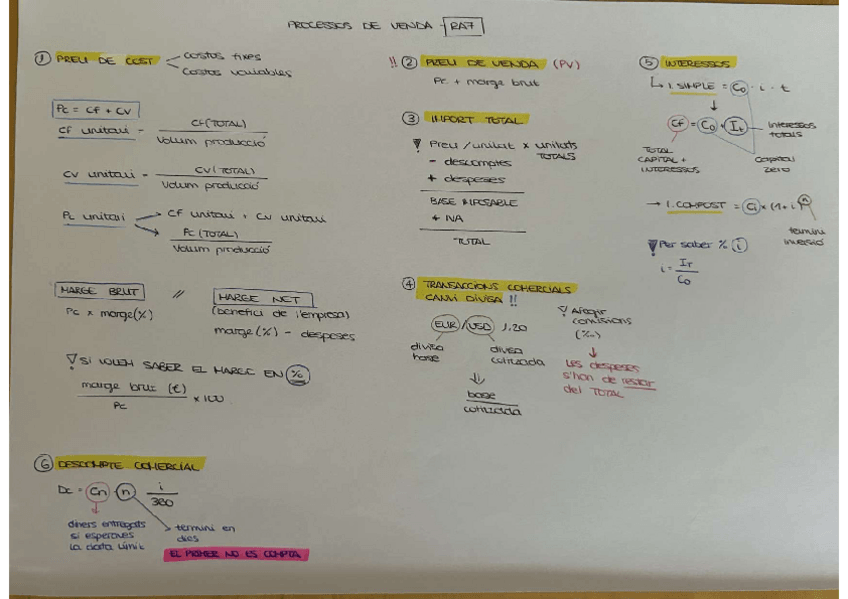 PROCESSOS DE VENDA - RA7
① PREU DE COST
costos fixes
costos variables
Pc = CF + CV
CF unitari = CF(TOTAL) / Volum producció
CV unitari = CV(TOTAL) / Volum producció
Pc unitari → CF unitari + CV unitari
→ Pc (TOTAL) / Volum producció
MARGE BRUT // MARGE NET
Pc x marge(%)
(benefici de l'empresa)
marge(%) - despeses
! SI VOLEM SABER EL MARGE EN %
marge brut (€) / Pc x 100
!! ② PREU DE VENDA (PV)
Pc + marge brut
③ IMPORT TOTAL
! Preu / unitat x unitats TOTALS
- descomptes
+ despeses
BASE IMPOSABLE
+ IVA
TOTAL
④ TRANSACCIONS COMERCIALS
CANVI DIVISA !!
EUR / USD 1.20
divisa base
divisa cotitzada
base / cotitzada
! Afegir comissions (%)
Les despeses
s'han de restar
del TOTAL
⑤ INTERESSOS
↳ I. SIMPLE = C0 · i · t
CF = C0 + IT
interessos totals
TOTAL CAPITAL + INTERESSOS
Capital zero
→ I. COMPOST = Ci x (1+i)n
termini inversió
! Per saber % i
i = IT / C0
⑥ DESCOMPTE COMERCIAL
Dc = Cn · n · i / 360
diners entregats
si esperaves
la data límit
termini en
dies
EL PRIMER NO ES COMPTA